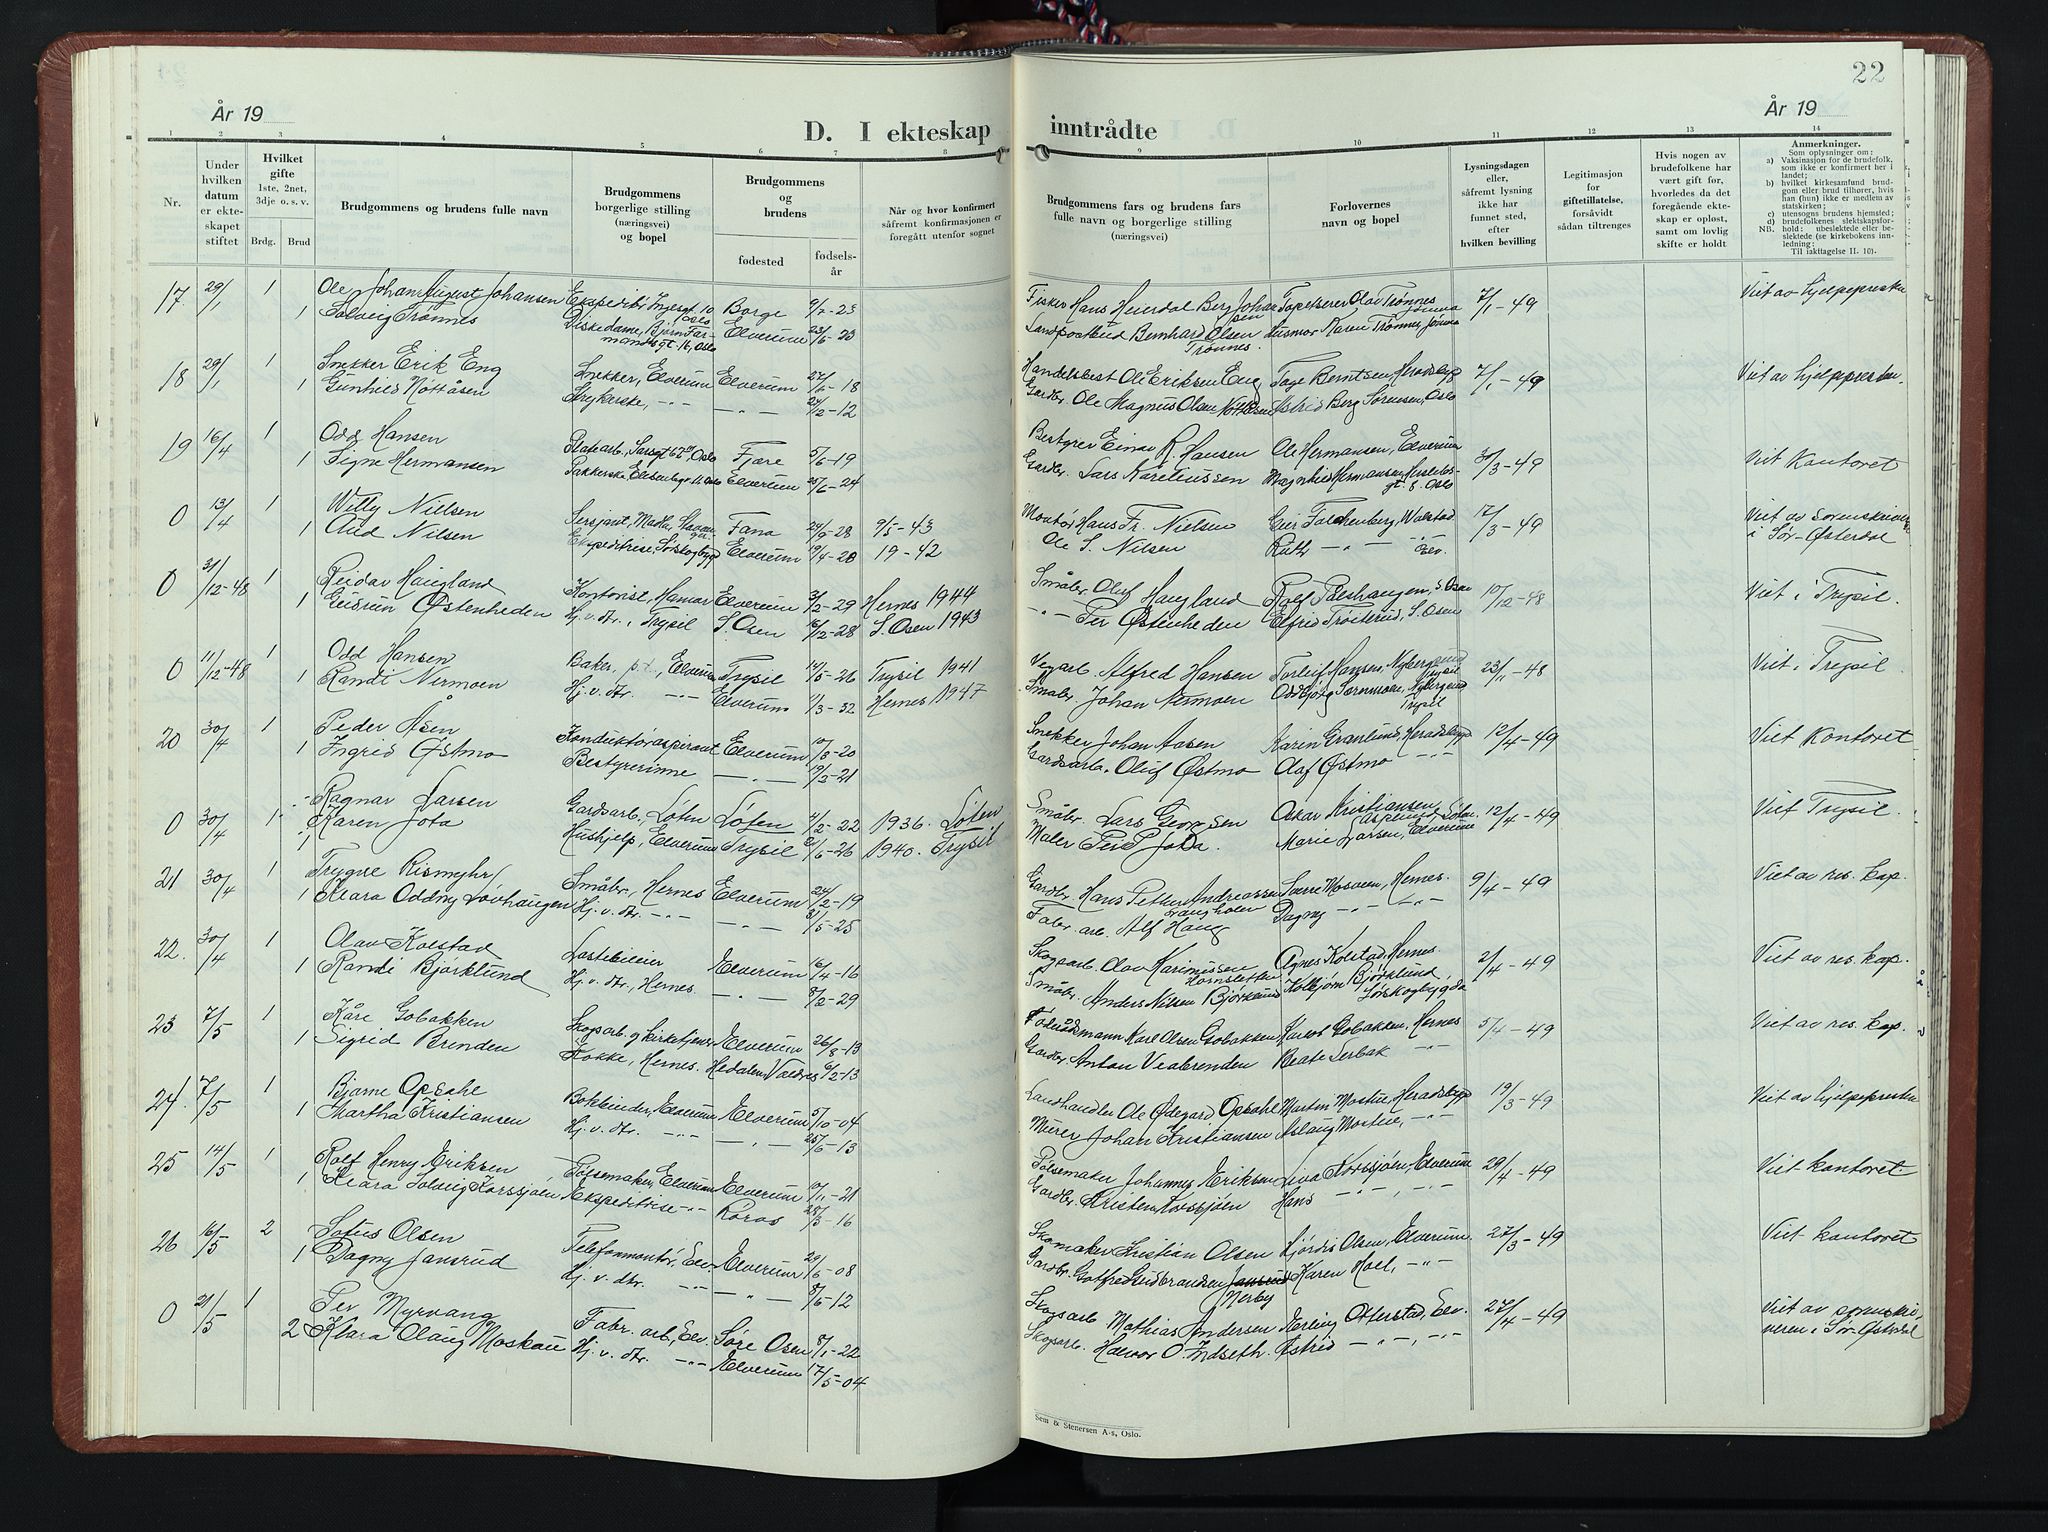 22
År 19
År 19
D. I ekteskap inntrådte
1 2 3 4 5 6 7 8 9 10 11 12 13 14
Nr.
Under hvilken datum er ekteskapet stiftet
Hvilket gifte
1ste, 2net, 3dje o. s. v.
Brdg. Brud
Brudgommens og brudens fulle navn
Brudgommens borgerlige stilling (næringsvei) og bopel
Brudgommens og brudens
fødested
fødselsår
Når og hvor konfirmert såfremt konfirmasjonen er foregått utenfor sognet
Brudgommens fars og brudens fars fulle navn og borgerlige stilling (næringsvei)
Forlovernes navn og bopel
Lysningsdagen eller, såfremt lysning ikke har funnet sted, efter hvilken bevilling
Legitimasjon for giftetillatelse, forsåvidt sådan tiltrenges
Hvis nogen av brudefolkene har vært gift før, hvorledes da det foregående ekteskap er opløst, samt om lovlig skifte er holdt
Anmerkninger.
Som oplysninger om:
a) Vaksinasjon for de brudefolk, som ikke er konfirmert her i landet;
b) hvilket kirkesamfund brudgom eller brud tilhører, hvis han (hun) ikke er medlem av statskirken;
c) utensogns brudens hjemsted;
d) brudefolkenes slektskapsforhold: ubeslektede eller beslektede (se kirkebokens innledning:
NB. Til iakttagelse II. 10).
17 29/1 1 Ole Johan August Johansen Ekspeditør, Borge 9/2-23 Fisker Hans Heierdal Berg Johansen Tapetserer Olav Trønnes 7/1-49 Viet av hjelpeprest
1 Solveig Trønnes Diskedame, Bjørn Farmandsgt. 16, Oslo Elverum 23/6-23 Landpostbud Bernhard Olsen Trønnes Husmor Karen Trønnes, Jømna
18 29/1 1 Snekker Erik Eng Snekker, Elverum Elverum 27/6-18 Handelsbest. Ole Eriksen Eng Berntsen, Heradsbygd 7/1-49 Viet av hjelpepresten
1 Gunhild Nøttåsen Strykerske, -"- -"- 24/2-12 Gardbr. Ole Magnus Olsen Nøttåsen Astrid Berg Sørensen, Oslo
19 16/4 1 Odd Hansen Oslo Fjære 5/6-19 Bestyrer Einar R. Hansen Ole Hermansen, Elverum 30/3-49 Viet Kontoret
1 Signe Hermansen Pakkerske, Elverum 25/6-24 Gardbr. Lars Magnhild Hermansen, gt. 8 Oslo
0 13/4 1 Willy Nielsen Sersjant, Madla, Stavanger Fana 24/9-28 9/5-43 Montør Hans Fr. Nielsen Geir Falchenberg, 17/3-49 Viet av sorenskriver
1 Aud Nilsen Ekspeditrise, Sørskogbygd Elverum 19/4-20 19-42 Ole S. Nilsen Ruth -"- -"- Elv. i Sør-Østerdal
0 31/12-48 1 Reidar Haugland Kontorist, Hamar Elverum 3/2-29 Hernes 1944 Småbr. Oluf Haugland Rolf S. Osen 10/12-48 Viet i Trysil.
1 Gudrun Østenheden Hj. v. dtr., Trysil S. Osen 16/12-28 S. Osen 1943 -"- Per Østenheden Elfrid Trøiterud, S. Osen
0 11/12-48 1 Odd Hansen Baker, p.t., Elverum Trysil 14/5-26 Trysil 1941 Vegarb. Alfred Hansen Torleif Hansen, Nybergsund Trysil 23/11-48 Viet i Trysil
1 Randi Nermoen Hj. v. dtr. -"- Elverum 11/3-32 Hernes 1947 Småbr. Johan Nermoen Oddbjørg Sørnmoen, Nybergsund Trysil
20 30/4 1 Peder Åsen Konduktøraspirant Elverum 10/8-20 Snekker Johan Aasen Karin Granlund, Heradsbygd 12/4-49 Viet Kontoret
1 Ingrid Østmo Bestyrerinne -"- 19/3-21 Gardsarb. Oluf Østmo Olaf Østmo -"-
0 30/4 1 Ragnar Larsen Gardsarb., Løten Løten 4/2-22 1936. Løten Småbr. Lars Georgsen Oskar Kristiansen Løten 12/4-49 Viet Trysil.
1 Karen Jota Hushjelp, Elverum Trysil 21/6-26 1940. Trysil Maler Per P. Jota. Marie Larsen, Elverum
21 30/4 1 Trygve Rismyhr Småbr., Hernes Elverum 24/2-19 Gardbr. Hans Petter Andreassen Sverre Mosveen, Hernes. 9/4-49 Viet av res. kap.
1 Klara Oddny Løvhaugen Hj. v. dtr. -"- -"- 31/5-25 Fabr. arb. Alf Haug Dagny -"- -"-
22. 30/4 1 Olav Kolstad Lastebileier Elverum 16/4-16 Skogsarb. Olav Karinussen Hornsletten Agnes Kolstad, Hernes. 2/4-49 Viet av res. kap.
1 Randi Bjørklund Hj. v. dtr., Hernes. -"- 8/2-29 Småbr. Anders Nilsen Bjørklund Kolbjørn Bjørklund, Sørskogbygda
23 7/5 1 Kåre Gobakken Skogsarb. og kirketjener Elverum 26/8-13 Føderådsmann Karl Olsen Gobakken Gobakken, Hernes 5/4-49 Viet av res. kap.
1 Sigrid Brenden Kokke, Hernes. Hedalen, Valdres 6/2-13 Gardbr. Anton Veabrenden Beate Lerbak -"-
24. 7/5 1 Bjarne Opsahl Bokbinder, Elverum Elverum 5/10-04 Landhandler Ole Ødegård Opsahl Morten Mostue, Heradsbygd 19/3-49 Viet av hjelpeprest
1 Martha Kristiansen Hj. v. dtr. -"- -"- 25/6-13 Murer Johan Kristiansen Aslaug Mostue, -"-
25 14/5 1 Rolf Henry Eriksen Pølsemaker, Elverum Elverum 10/11-21 Pølsemaker Johannes Eriksen Liva Korssjøen, Elverum 29/4-49 Viet kontoret.
1 Klara Solveig Korssjøen Ekspeditrise -"- Røros 28/3-16 Gardbr. Kristen Korssjøen Hans -"- -"-
26 16/5 2 Sofus Olsen Telefonmontør, Elv. Elverum 29/6-08 Skomaker Kristian Olsen Hjørdis Olsen, Elverum 27/3-49 Viet kontoret
1 Dagny Jansrud Hj. v. dtr. -"- -"- 8/6-12 Gardbr. Gotfred Gudbrandsen Jansrud Nerby Karen Moel, -"-
0 21/5 1 Per Myrvang Fabr. arb., Elv. Søre Osen 8/1-22 Skogsarb. Mathias Andersen Erling Otterstad, Elv. 27/4-49 Viet av sorenskriveren i Sør-Østerdal
2 Klara Olaug Moskau Hj. v. dtr. -"- Elverum 17/5-04 Skogsarb. Halvor O. Indseth. Astrid -"-, -"-
Sem & Stenersen A-s, Oslo.